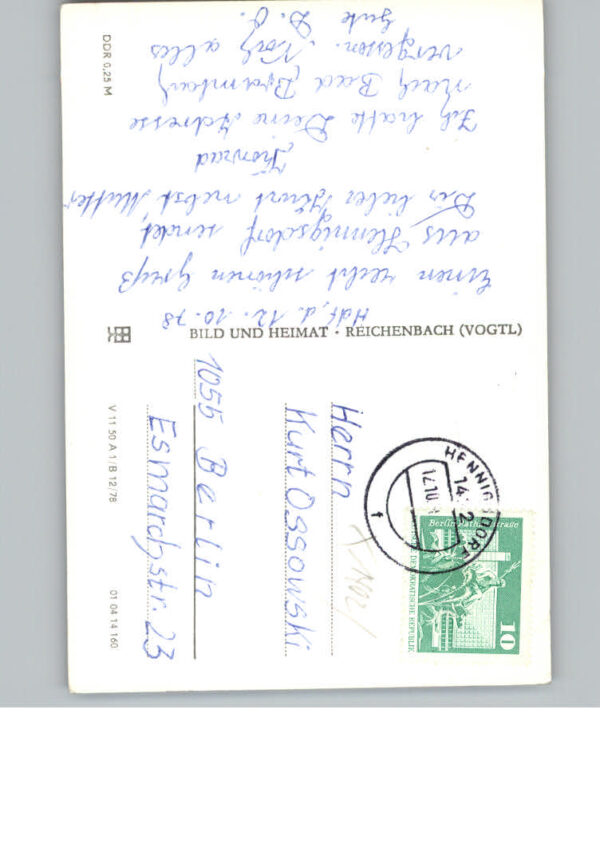 Hdf, d. 12.10.78
Einen recht schönen Gruß
aus Hennigsdorf sendet
Dir lieber Kurt nebst Mutter
Konrad
Ich hatte Deine Adresse
nach Bad Brambach
vergessen. Noch alles
Gute D. O.
DDR 0,25 M
BILD UND HEIMAT · REICHENBACH (VOGTL)
V 11 50 A 1/B 12/78
01 04 14 160
Herrn
Kurt Ossowski
1055 Berlin
Esmarchstr. 23
HENNIGSDORF
Berlin, Rathausstraße
DEUTSCHE DEMOKRATISCHE REPUBLIK
10